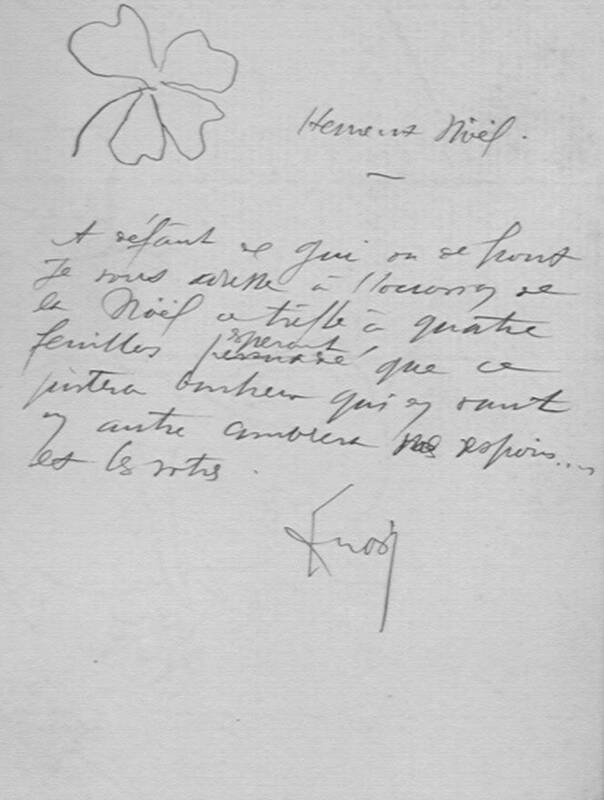 Noël.
A défaut de gui ou de houx
Je vous adresse à l'occasion de
la Noël ce trèfle à quatre
feuilles persuadé espérant que ce
portera bonheur qui en vaut
un autre comblera nos espoirs....
et les votres.